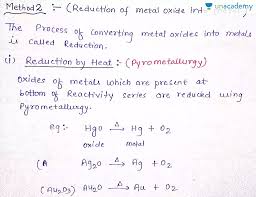 Method 2 :- (Reduction of metal oxide
unacademy
The Process of converting metal oxides into metals
is called Reduction.
(i) Reduction by Heat :- (Pyrometallurgy)
oxides of metals which are present at
bottom of Reactivity series are reduced using
Pyrometallurgy.
eg:- HgO Δ→ Hg + O2
oxide metal
(A Ag2O Δ→ Ag + O2
(Au2O3) Au2O Δ→ Au + O2